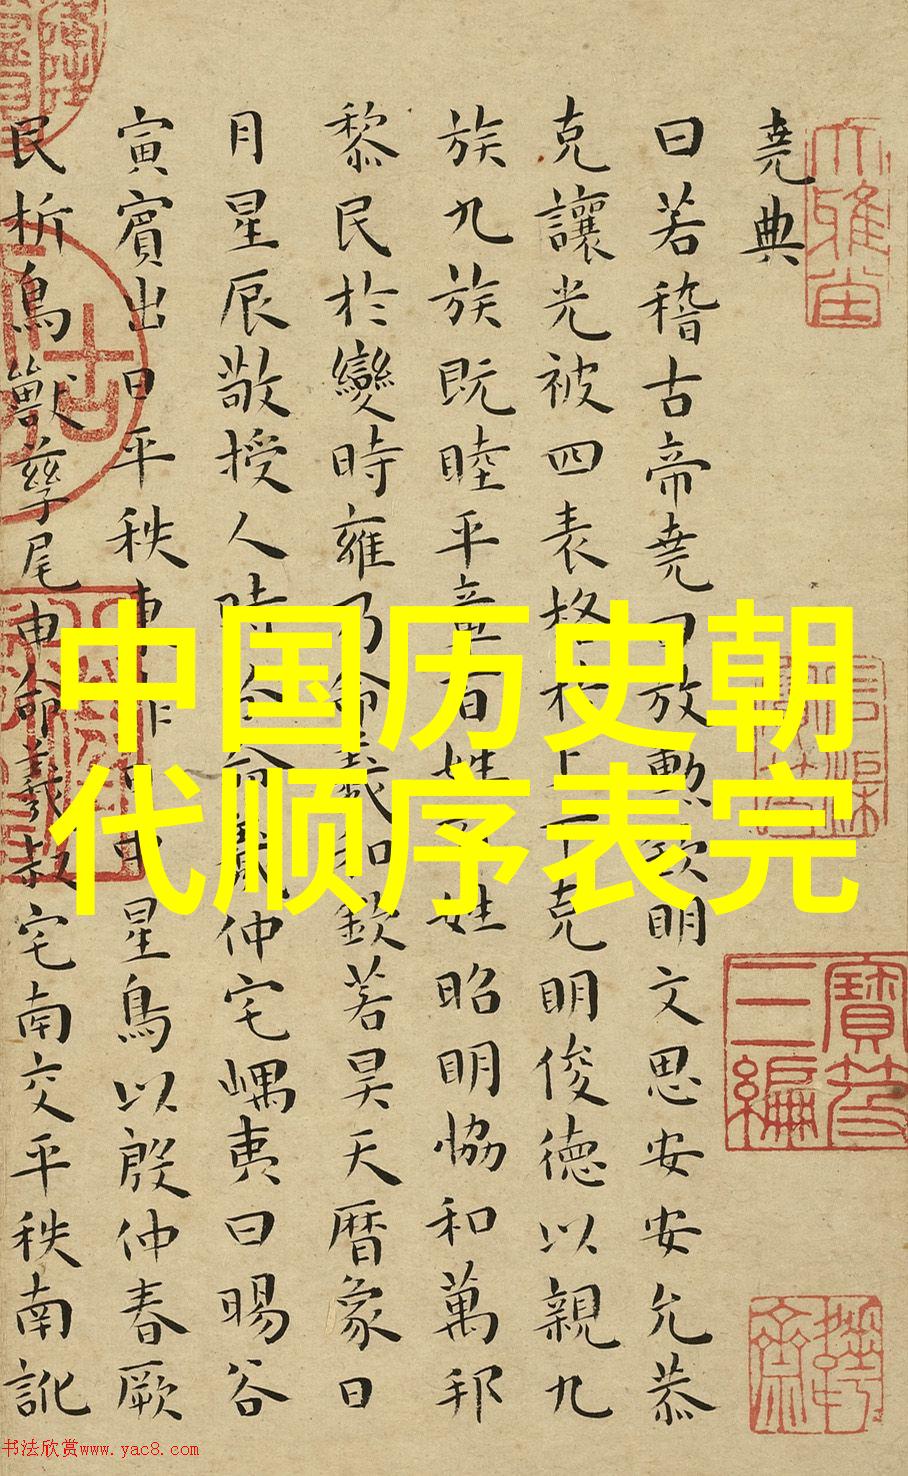 堯典
曰若稽古帝堯曰放勲欽明文思安安允恭
克讓光被四表格于上下克明俊德以親九
族九族既睦平章百姓百姓昭明協和萬邦
黎民於變時雍乃命羲和欽若昊天曆象日
月星辰敬授人時分命羲仲宅嵎夷曰暘谷
寅賓出日平秩東作日中星鳥以殷仲春厥
民析鳥獸孳尾申命羲叔宅南交平秩南訛
中国历史朝
代顺序表完
寶笈
三編
书法欣赏www.yac8.com